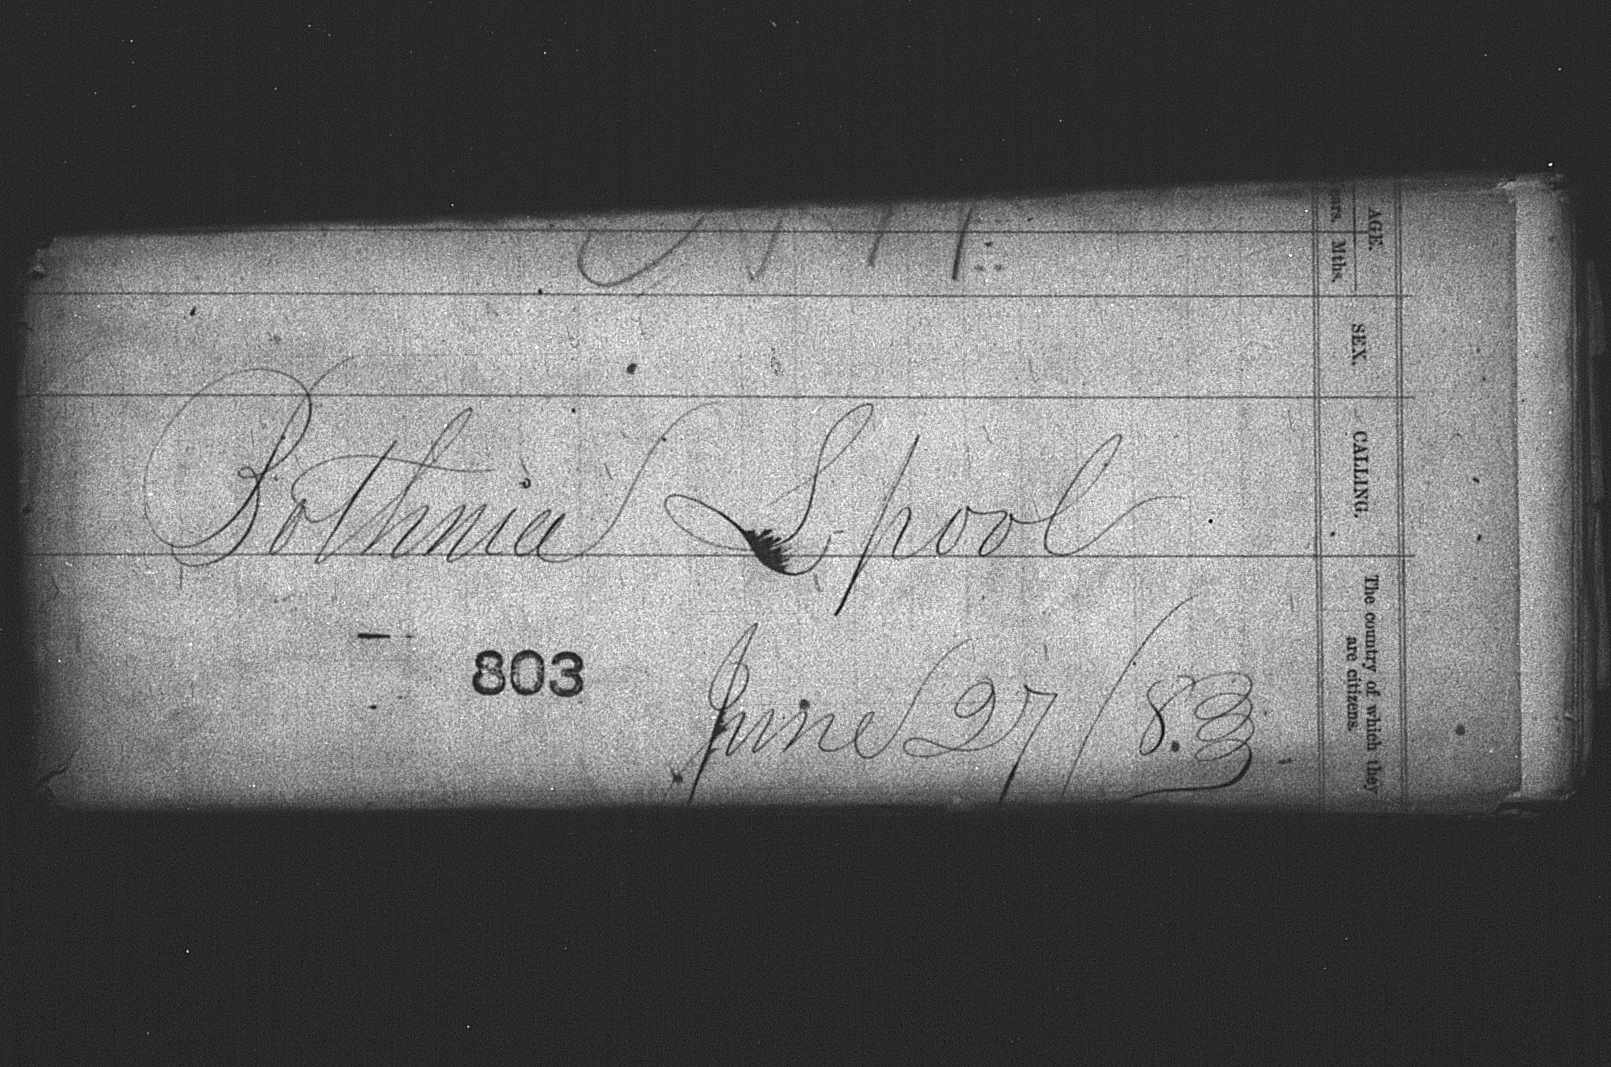 Bothnia L.pool
803
June 27/83
AGE.
Mths.
SEX.
CALLING.
The country of which they
are citizens.